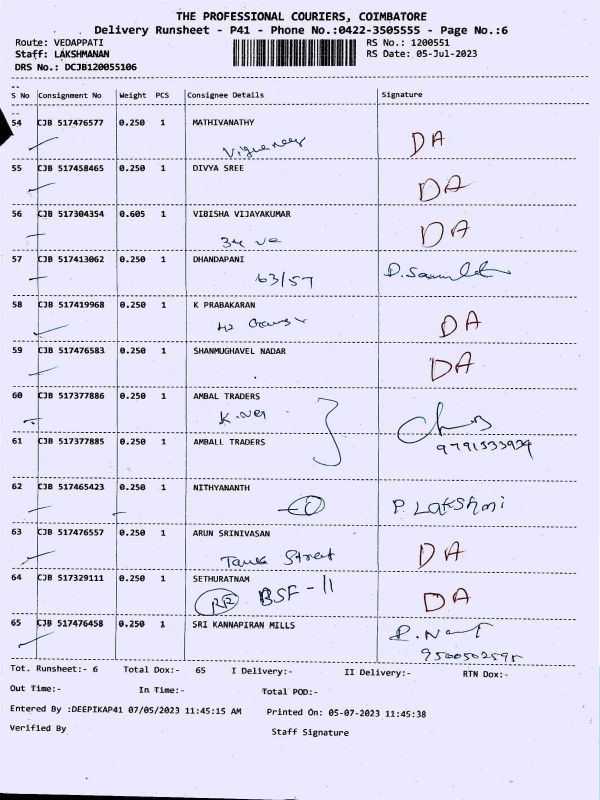 THE PROFESSIONAL COURIERS, COIMBATORE
Delivery Runsheet - P41 - Phone No.:0422-3505555 - Page No.:6
Route: VEDAPPATI RS No.: 1200551
Staff: LAKSHMANAN RS Date: 05-Jul-2023
DRS No.: DCJB120055106
S No Consignment No Weight PCS Consignee Details Signature
54 CJB 517476577 0.250 1 MATHIVANATHY
DA
55 CJB 517458465 0.250 1 DIVYA SREE
DA
56 CJB 517304354 0.605 1 VIBISHA VIJAYAKUMAR
DA
34
57 CJB 517413062 0.250 1 DHANDAPANI
63/57
58 CJB 517419968 0.250 1 K PRABAKARAN
DA
59 CJB 517476583 0.250 1 SHANMUGHAVEL NADAR
DA
60 CJB 517377886 0.250 1 AMBAL TRADERS
61 CJB 517377885 0.250 1 AMBALL TRADERS
62 CJB 517465423 0.250 1 NITHYANANTH
P. Lakshmi
63 CJB 517476557 0.250 1 ARUN SRINIVASAN
Tank Street DA
64 CJB 517329111 0.250 1 SETHURATNAM
RR BSF-11 DA
65 CJB 517476458 0.250 1 SRI KANNAPIRAN MILLS
Tot. Runsheet:- 6 Total Dox:- 65 I Delivery:- II Delivery:- RTN Dox:-
Out Time:- In Time:- Total POD:-
Entered By :DEEPIKAP41 07/05/2023 11:45:15 AM Printed On: 05-07-2023 11:45:38
Verified By Staff Signature